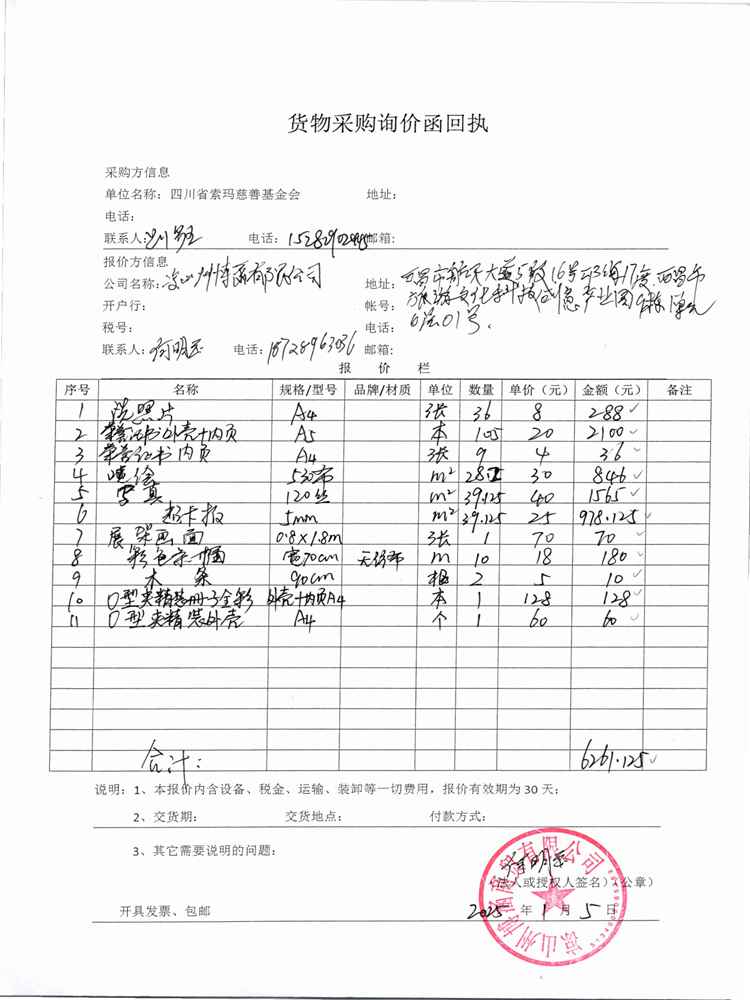 货物采购询价函回执
采购方信息
单位名称：四川省索玛慈善基金会 地址：
电话：
联系人: 电话： 邮箱:
报价方信息
公司名称: 凉山州博酉商贸有限公司 地址:
开户行： 帐号：
6层01号.
税号： 电话：
联系人: 电话: 18728963036 邮箱:
报 价 栏
序号 名称 规格/型号 品牌/材质 单位 数量 单价（元） 金额（元） 备注
1 洗照片 A4 张 36 8 288
2 荣誉证书外壳+内页 A5 本 105 20 2100
3 荣誉证书内页 A4 张 9 4 36
4 喷绘 530布 m² 28.2 30 846
5 写真 120丝 m² 39.125 40 1565
6 超卡板 5mm m² 39.125 25 978.125
7 展架画面 0.8×1.8m 张 1 70 70
8 彩色条幅 宽70cm 无纺布 m 10 18 180
9 木条 90cm 根 2 5 10
10 O型夹精装册子全彩 外壳+内页A4 本 1 128 128
11 O型夹精装外壳 A4 个 1 60 60
合计： 6261.125
说明：1、本报价内含设备、税金、运输、装卸等一切费用，报价有效期为 30 天；
2、交货期： 交货地点： 付款方式：
3、其它需要说明的问题：
（法人或授权人签名）（公章）
开具发票、包邮 2025 年 1 月 5 日